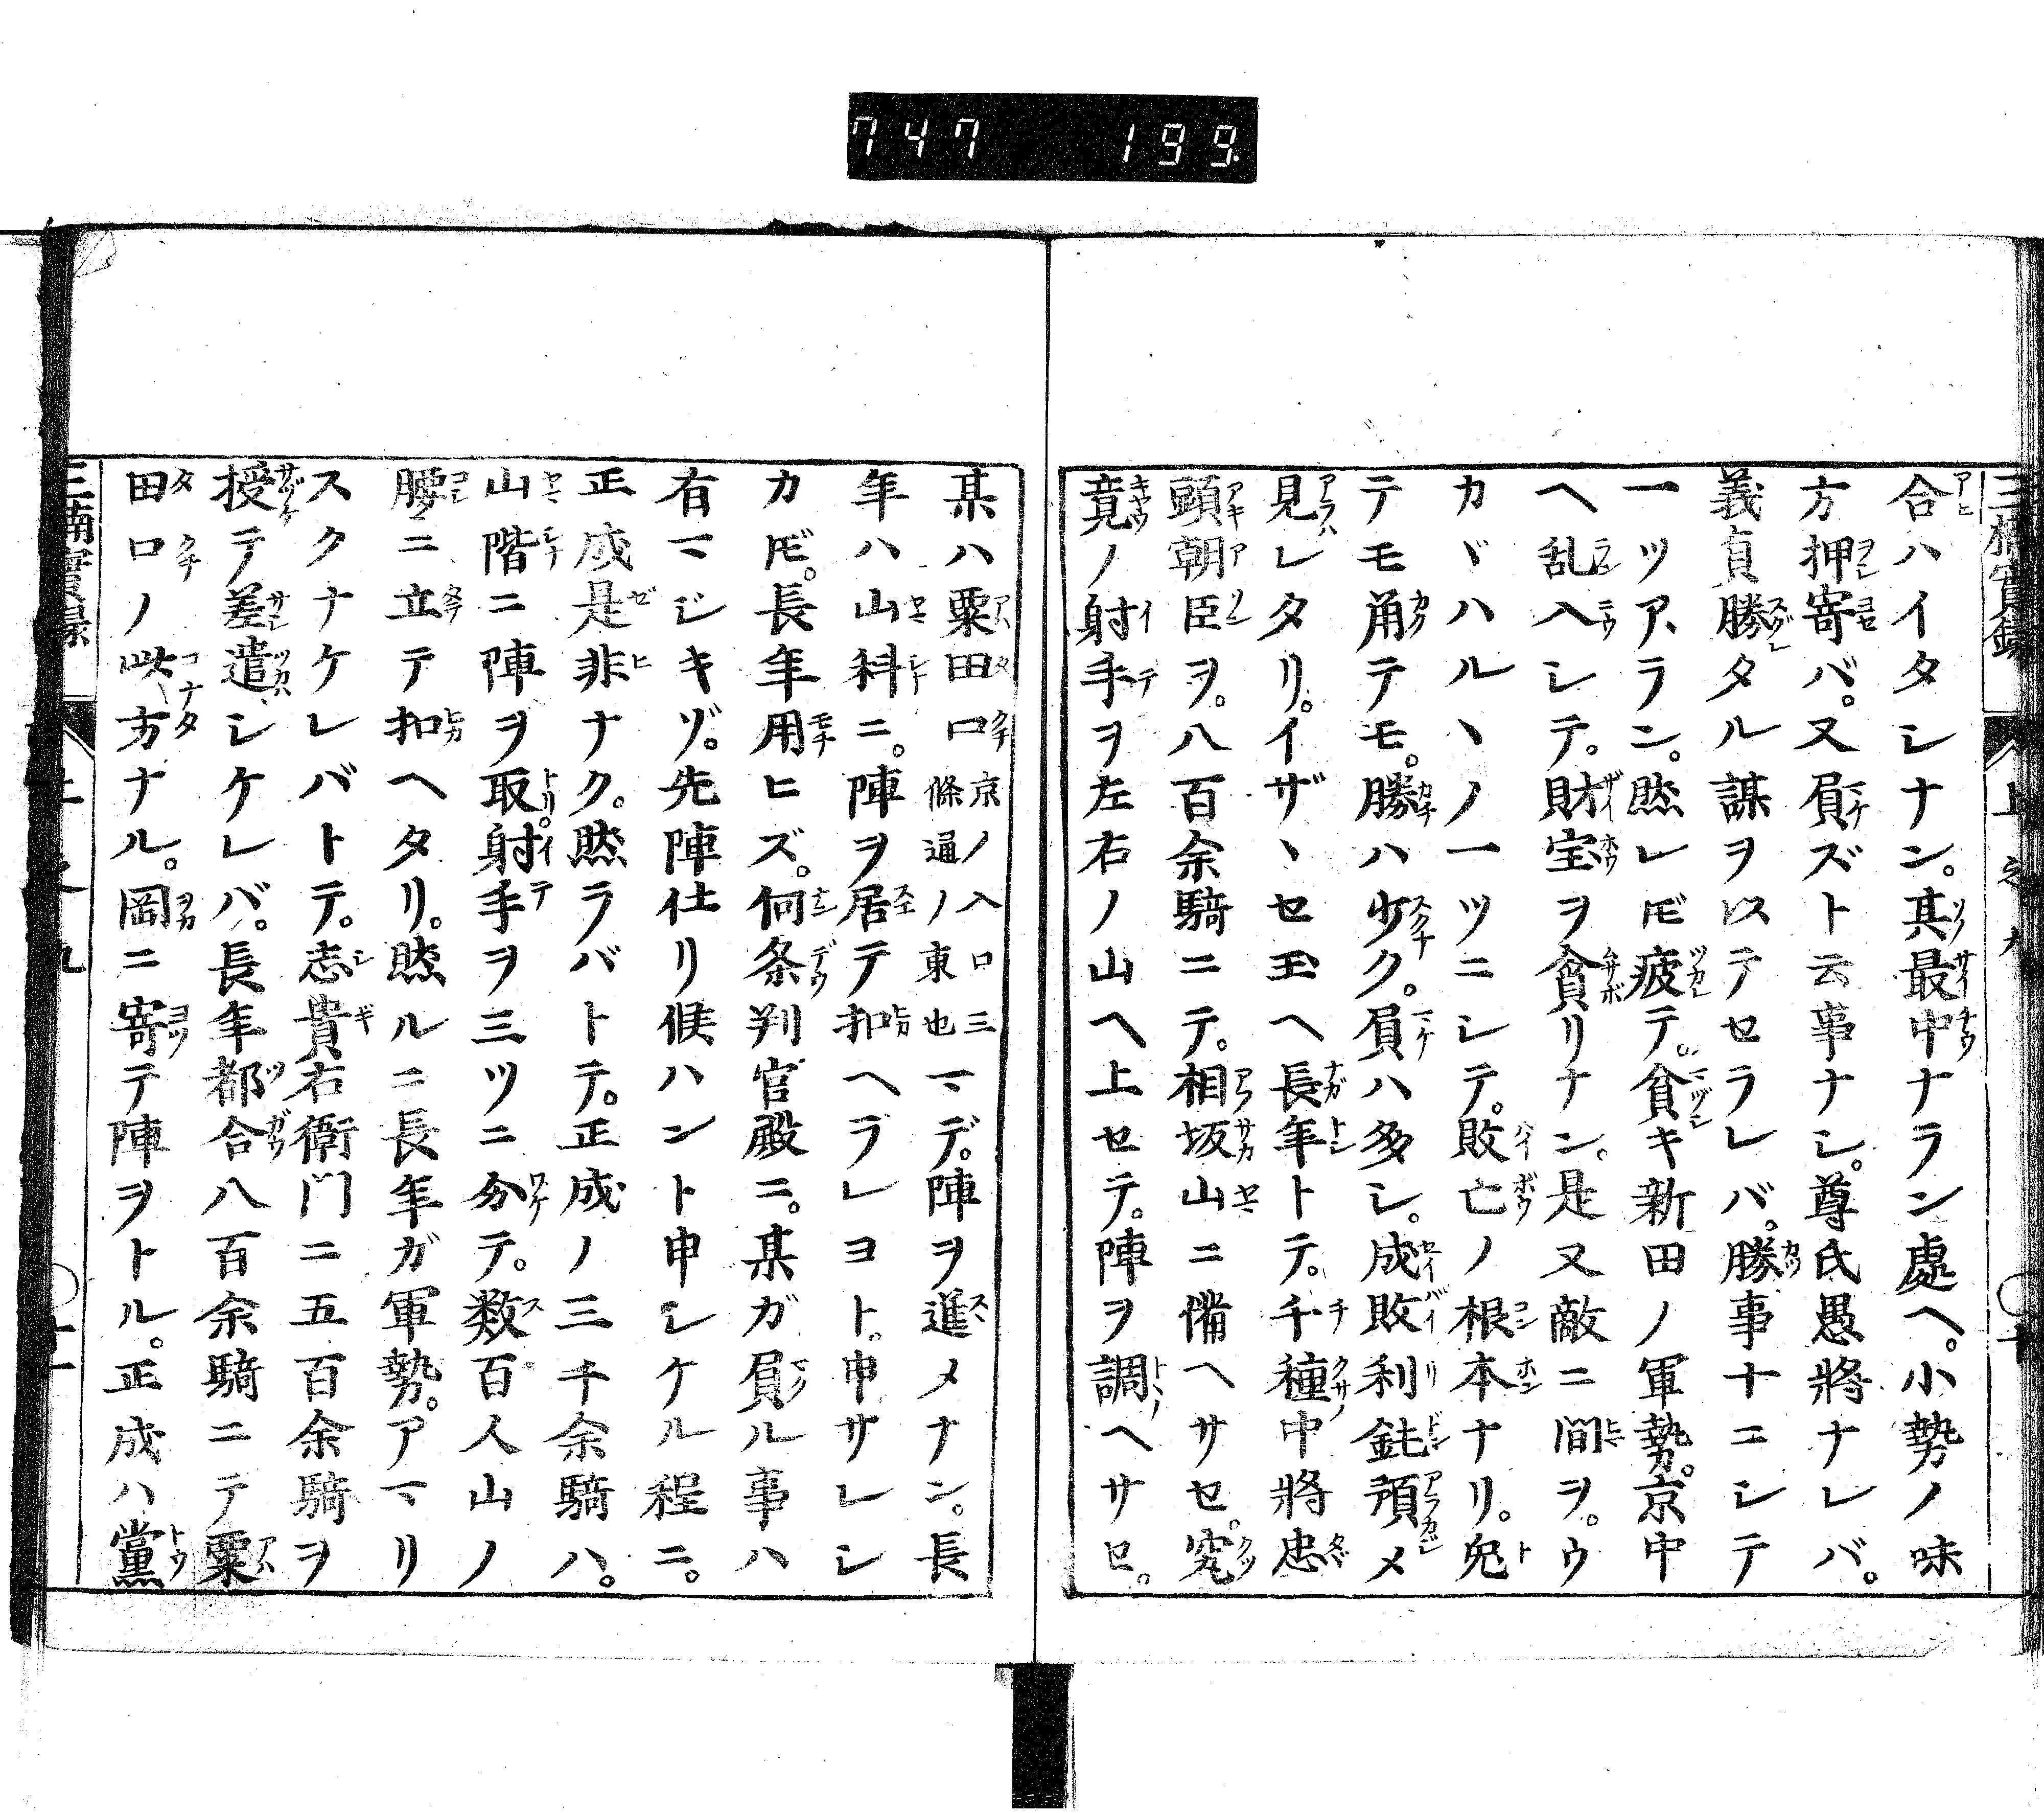 747 199.
三楠實録
上之九
○十
合ハイタシナン。其最中ナラン處ヘ。小勢ノ味
方押寄バ。又屓ズト云事ナシ。尊氏愚將ナレバ。
義貞勝タル謀ヲ以テセラレバ。勝事十ニシテ
一ツアラン。然レ𪜈疲テ。貧キ新田ノ軍勢。京中
ヘ乱入シテ。財宝ヲ貪リナン。是又敵ニ間ヲ。ウ
カヾハルヽノ一ツニシテ。敗亡ノ根本ナリ。兔
テモ角テモ。勝ハ少ク。屓ハ多シ。成敗利鈍預メ
見レタリ。イザヽセ玉ヘ長年トテ。千種中將忠
頭朝臣ヲ。八百余騎ニテ。相坂山ニ備ヘサセ。究
竟ノ射手ヲ左右ノ山ヘ上セテ。陣ヲ調ヘサセ。
某ハ粟田口京ノ入口三條通ノ東也マデ。陣ヲ進メナン。長
年ハ山科ニ。陣ヲ居テ扣ヘラレヨト。申サレシ
カ𪜈。長年用ヒズ。何条判官殿ニ。某ガ屓ル事ハ
有マジキゾ。先陣仕リ候ハント申シケル程ニ。
正成是非ナク。然ラバトテ。正成ノ三千余騎ハ。
山階ニ陣ヲ取。射手ヲ三ツニ分テ。数百人山ノ
腰ニ立テ扣ヘタリ。然ルニ長年ガ軍勢。アマリ
スクナケレバトテ。志貴右衛門ニ五百余騎ヲ
授テ差遣シケレバ。長年都合八百余騎ニテ粟
田口ノ此方ナル。岡ニ寄テ陣ヲトル。正成ハ黨
三楠實録
上之九
○十一